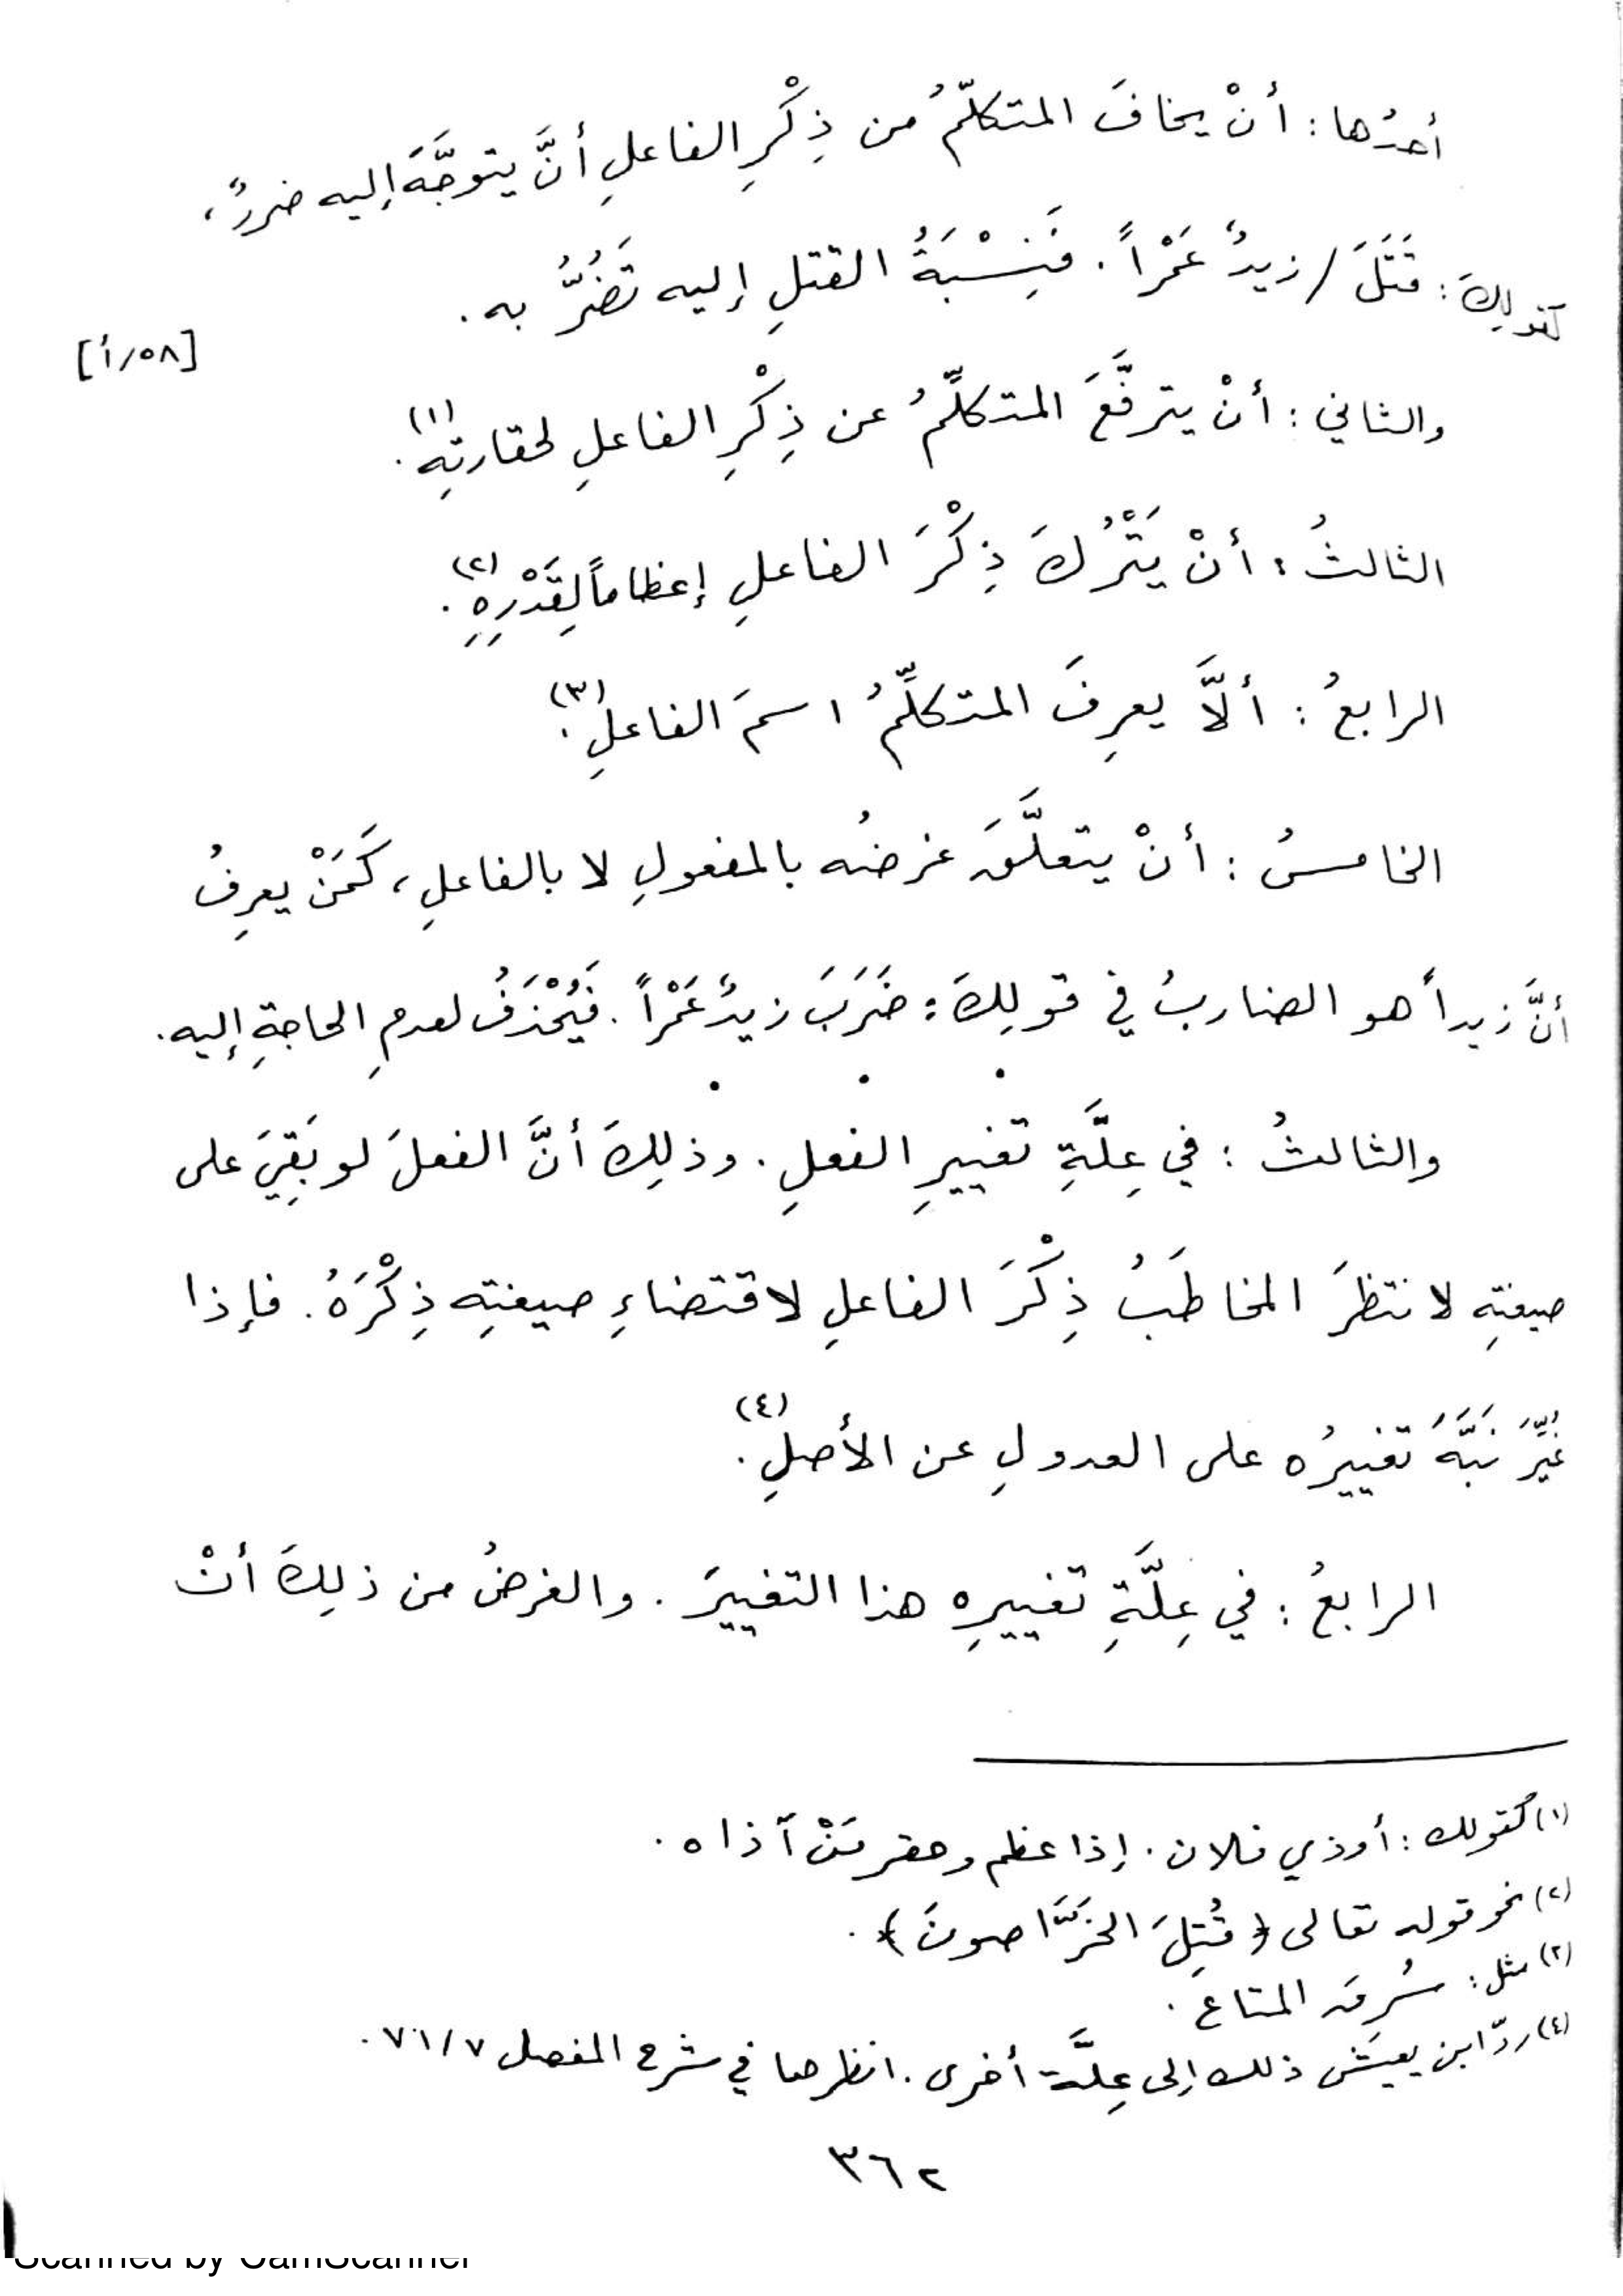 أحدُها : أنْ يخافَ المتكلّمُ من ذِكْرِ الفاعلِ أنَّ يتوجَّهَ إليه ضررٌ ،
كقولِكَ : قَتَلَ / زيدٌ عَمْراً . فَنِسْبَةُ القتلِ إليه تَضُرُّ به .
[٥٨/أ]
والثاني : أنْ يترفَّعَ المتكلِّمُ عن ذِكْرِ الفاعلِ لحقارتِهِ (١) .
الثالثُ : أنْ يَتْرُكَ ذِكْرَ الفاعلِ إعظاماً لِقَدْرِهِ (٢) .
الرابعُ : ألاَّ يعرِفَ المتكلِّمُ اسمَ الفاعلِ (٣) .
الخامسُ : أنْ يتعلَّقَ غرضُه بالمفعولِ لا بالفاعلِ ، كَمَنْ يعرِفُ
أنَّ زيداً هو الضاربُ في قولِكَ : ضَرَبَ زيدٌ عَمْراً . فَيُحْذَفُ لعدمِ الحاجةِ إليه .
والثالثُ : في عِلَّةِ تغييرِ الفعلِ . وذلِكَ أنَّ الفعلَ لو بَقِيَ على
صيغتِه لانتظرَ المخاطَبُ ذِكْرَ الفاعلِ لاقتضاءِ صيغتِه ذِكْرَهُ . فإذا
غُيِّرَ نَبَّهَ تغييرُه على العدولِ عن الأصلِ (٤) .
الرابعُ : في عِلَّةِ تغييرِه هذا التغييرَ . والغرضُ من ذلِكَ أنْ
(١) كقولك : أوذي فلان . إذا عظم وحقر مَنْ آذاه .
(٢) نحو قوله تعالى ﴿ قُتِلَ الخَرَّاصونَ ﴾ .
(٣) مثل : سُرِقَ المتاع .
(٤) ردّ ابن يعيَش ذلك إلى عِلَّة أخرى . انظرها في شرح المفصل ٧٠/٧ .
٣٦٢
Scanned by CamScanner